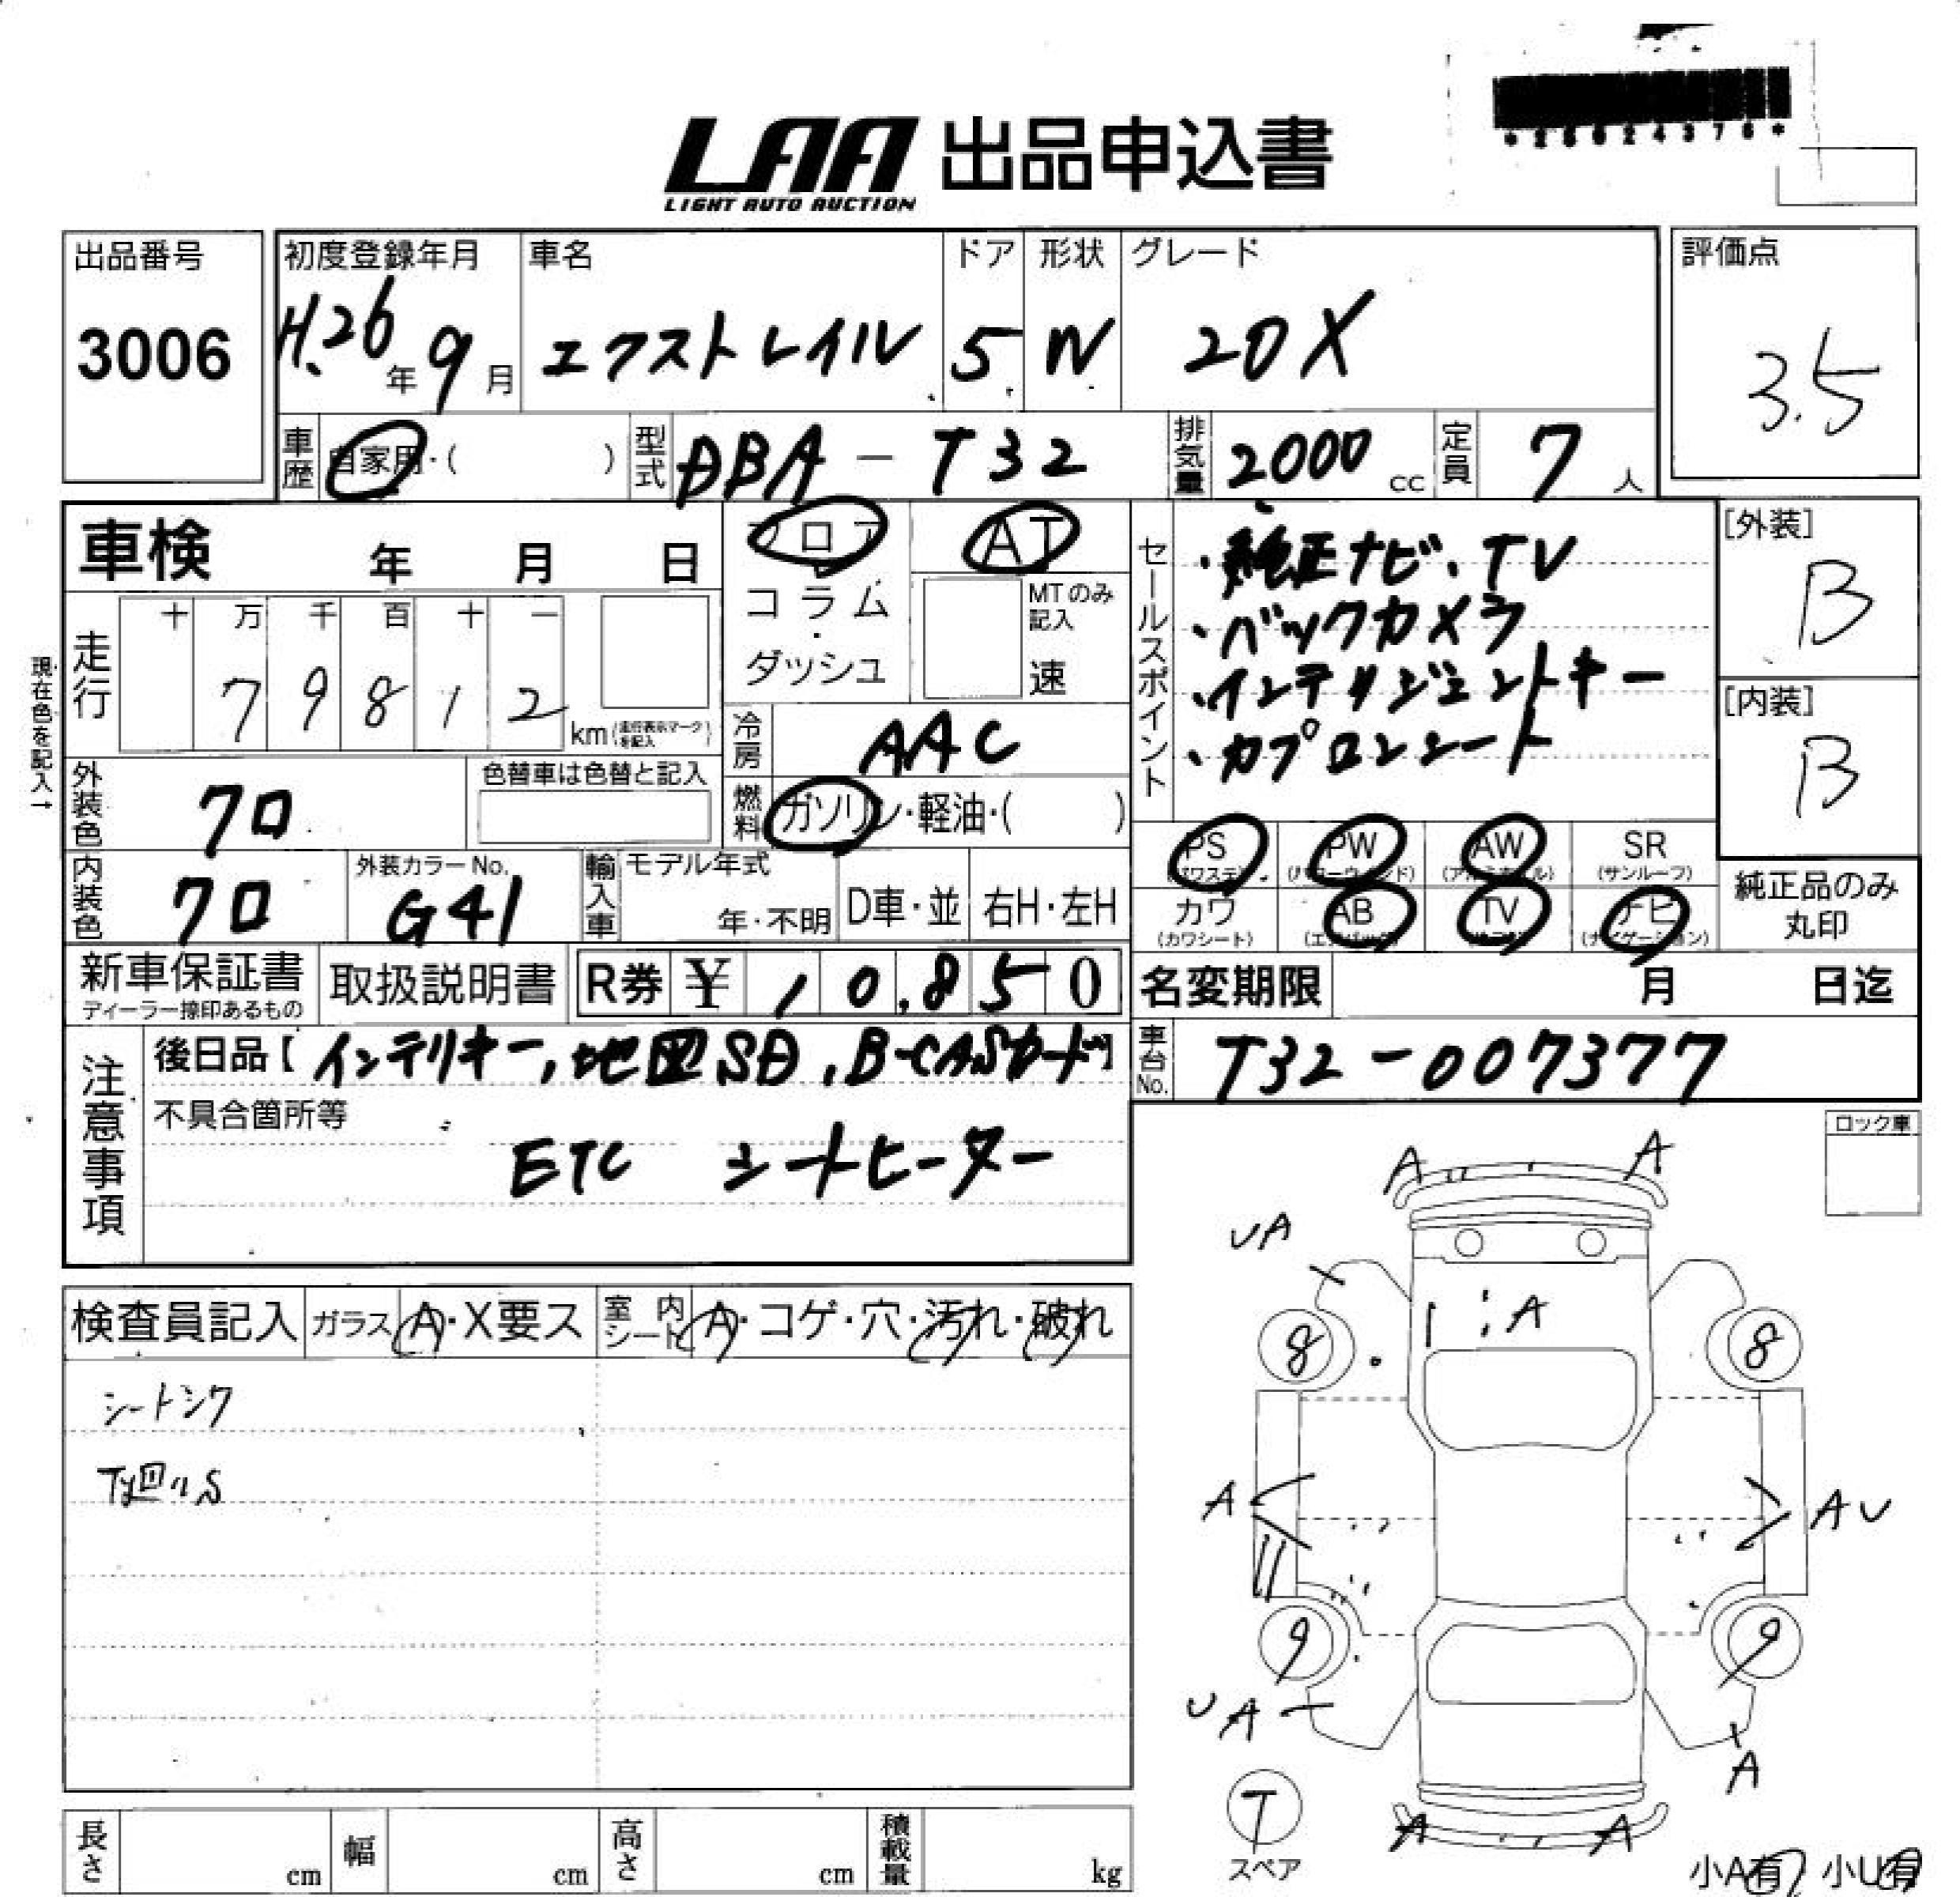 LAA 出品申込書
LIGHT AUTO AUCTION
出品番号
3006
初度登録年月
H.26年9月
車名
エクストレイル
ドア
5
形状
W
グレード
20X
評価点
3.5
車歴
自家用・( )
型式
DBA-T32
排気量
2000cc
定員
7人
車検 年 月 日
フロア
コラム
・
ダッシュ
AT
MTのみ記入
速
セールスポイント
・純正ナビ、TV
・バックカメラ
・インテリジェントキー
・カプロンシート
[外装]
B
[内装]
B
現在色を記入→
走行
十 万 千 百 十 一
7 9 8 1 2
km(走行表示マークを記入)
冷房
AAC
外装色
クロ
色替車は色替と記入
燃料
ガソリン・軽油・( )
PS (パワステ)
PW (パワーウィンド)
AW (アルミホイル)
SR (サンルーフ)
内装色
クロ
外装カラーNo.
G41
輸入車
モデル年式
年・不明
D車・並
右H・左H
カワ (カワシート)
AB (エアバッグ)
TV
ナビ (ナビゲーション)
純正品のみ
丸印
新車保証書
ディーラー捺印あるもの
取扱説明書
R券 ¥ 10,850
名変期限 月 日迄
注意事項
後日品【インテリキー,地図SD,B-CASカード】
車台No.
T32-007377
不具合箇所等
ETC シートヒーター
ロック車
A A
UA
A
8 8
A
AU
9 9
UA
A
A A
T
スペア
小A有 小U有
検査員記入
ガラス A・X要ス
室内シート A・コゲ・穴・汚れ・破れ
シートシワ
下廻りS
長さ cm
幅 cm
高さ cm
積載量 kg